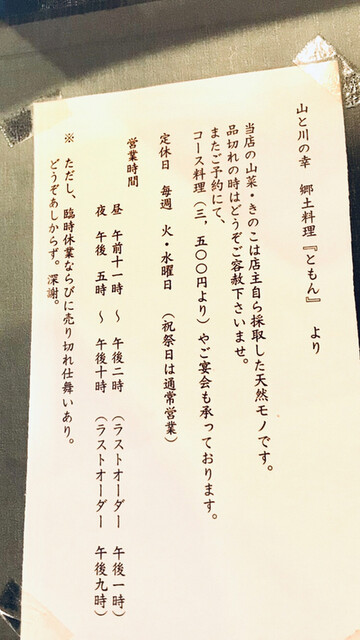 山と川の幸　郷土料理『ともん』　より
当店の山菜・きのこは店主自ら採取した天然モノです。
品切れの時はどうぞご容赦下さいませ。
またご予約にて、
コース料理（三，五〇〇円より）やご宴会も承っております。
定休日　毎週　火・水曜日　（祝祭日は通常営業）
営業時間
昼　午前十一時　～　午後二時　（ラストオーダー　午後一時）
夜　午後　五時　～　午後十時　（ラストオーダー　午後九時）
※　ただし、臨時休業ならびに売り切れ仕舞いあり。
どうぞあしからず。深謝。